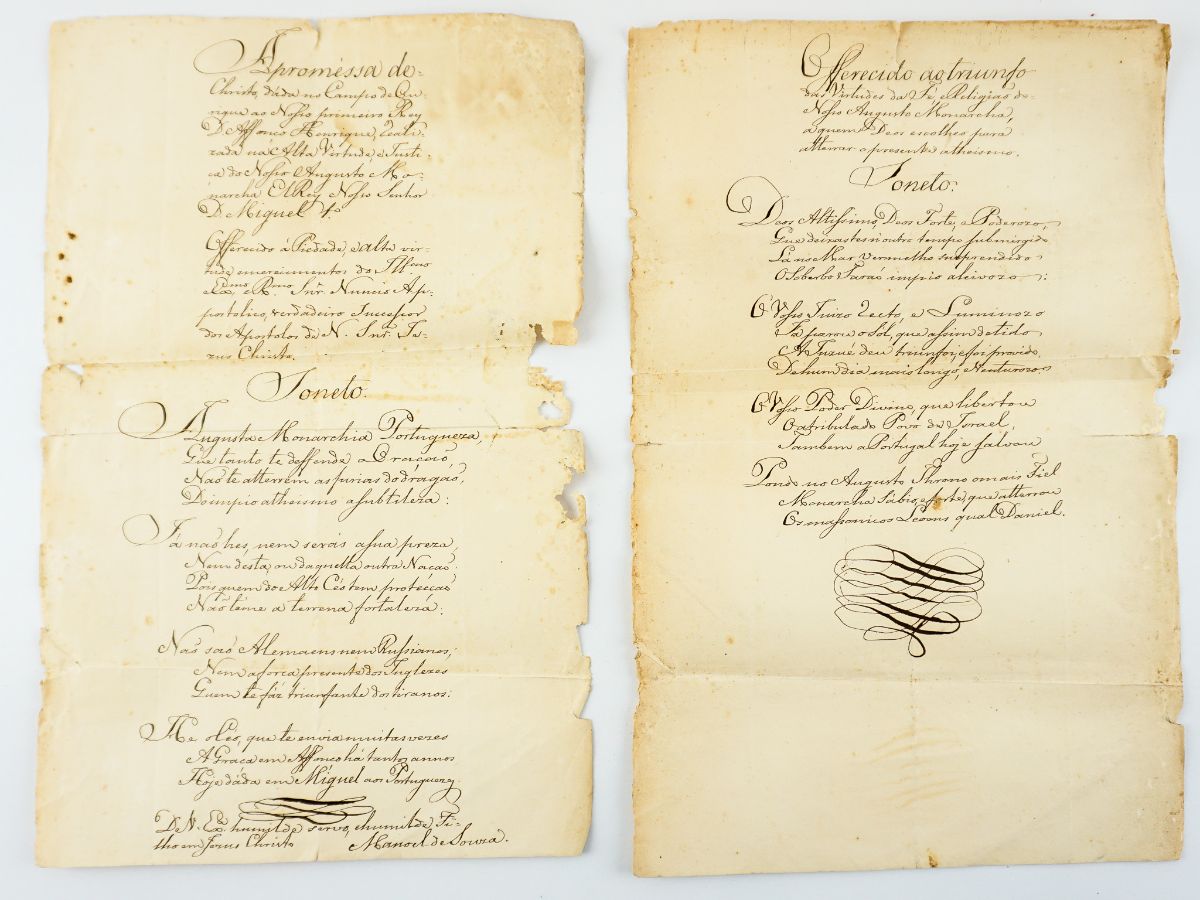 A promessa de
Christo, dada no Campo de Ou-
rique ao Nosso primeiro Rey
D. Affonço Henrique, reali-
zada na Alta Virtude, e Justi-
ça do Nosso Augusto Mo-
narcha ElRey Nosso Senhor
D. Miguel 1º
Offerecido á Piedade, e alta vir-
tude e merecimentos do Illmo
e Exmo e Rmo Snr. Nuncio Ap-
postolico, verdadeiro Sucessor
dos Apostolos de N. Snr. Je-
zus Christo.
Soneto.
Augusta Monarchia Portugueza,
Que tanto te deffende a Oração,
Não te atterrem as furias do dragão,
Do impio atheismo a subtileza:
Já não hes, nem serás a sua preza,
Nem désta, ou daquella outra Nação:
Pois quem do Alto Céo tem protecção
Não téme a terrena fortaleza:
Não são Alemaens nem Russianos,
Nem a força presente dos Inglezes
Quem te fáz triunfante dos tiranos:
He o Céo, que te envia muitas vezes
A Graça em Affonco há tantos annos
Hoje dáda em Miguel aos Portuguezes.
De V. Ex. humilde servo, e humilde Fi-
lho em Jezus Christo Manoel de Souza.
Offerecido ao triunfo
das Virtudes da Fé, e Religião do
Nosso Augusto Monarcha,
a quem Deos escolheo para
atterrar o presente atheismo.
Soneto:
Deos Altissimo, Deos Forte, e Poderozo,
Que deixastes n'outro tempo submergido
Lá no Mar vermelho surprendido
O Soberbo Faraó impio aleivozo:
O Vosso Juizo recto, e Luminozo
Fá parou o Sól, que assim detido
A Jozué deu triunfo; e foi provido
De hum dia mais longo, e Venturozo.
O Vosso Poder Divino, que libertou
O atribulado Povo de Israel,
Tambem a Portugal hoje salvou
Pondo no Augusto Throno o mais Fiel
Monarcha Sábio, e forte, que atterrou
Os massonicos Leoens qual Daniel.